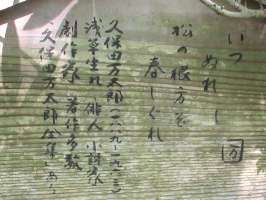 いつ
ぬれし
松の根方ぞ
春しぐれ
久保田万太郎(一八八九~一九六三)
浅草生れ 俳人 小説家
劇作家 著作多数
"久保田万太郎全集"あり